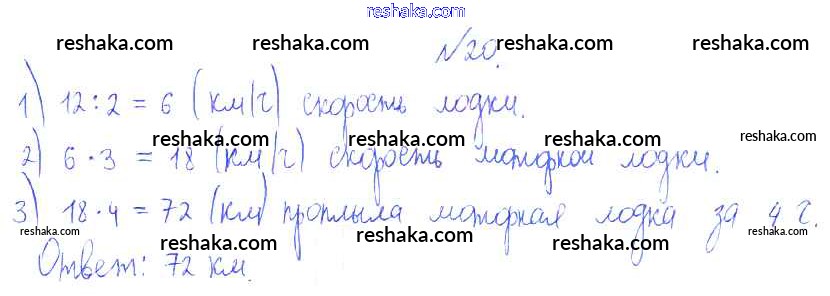 reshaka.com
reshaka.com reshaka.com №20. reshaka.com
1) 12:2 = 6 (км/ч) скорость лодки.
reshaka.com reshaka.com reshaka.com reshaka.com
2) 6·3 = 18 (км/ч) скорость моторной лодки.
reshaka.com reshaka.com reshaka.com reshaka.com
3) 18·4 = 72 (км) проплыла моторная лодка за 4 ч.
reshaka.com reshaka.com reshaka.com reshaka.com
Ответ: 72 км.